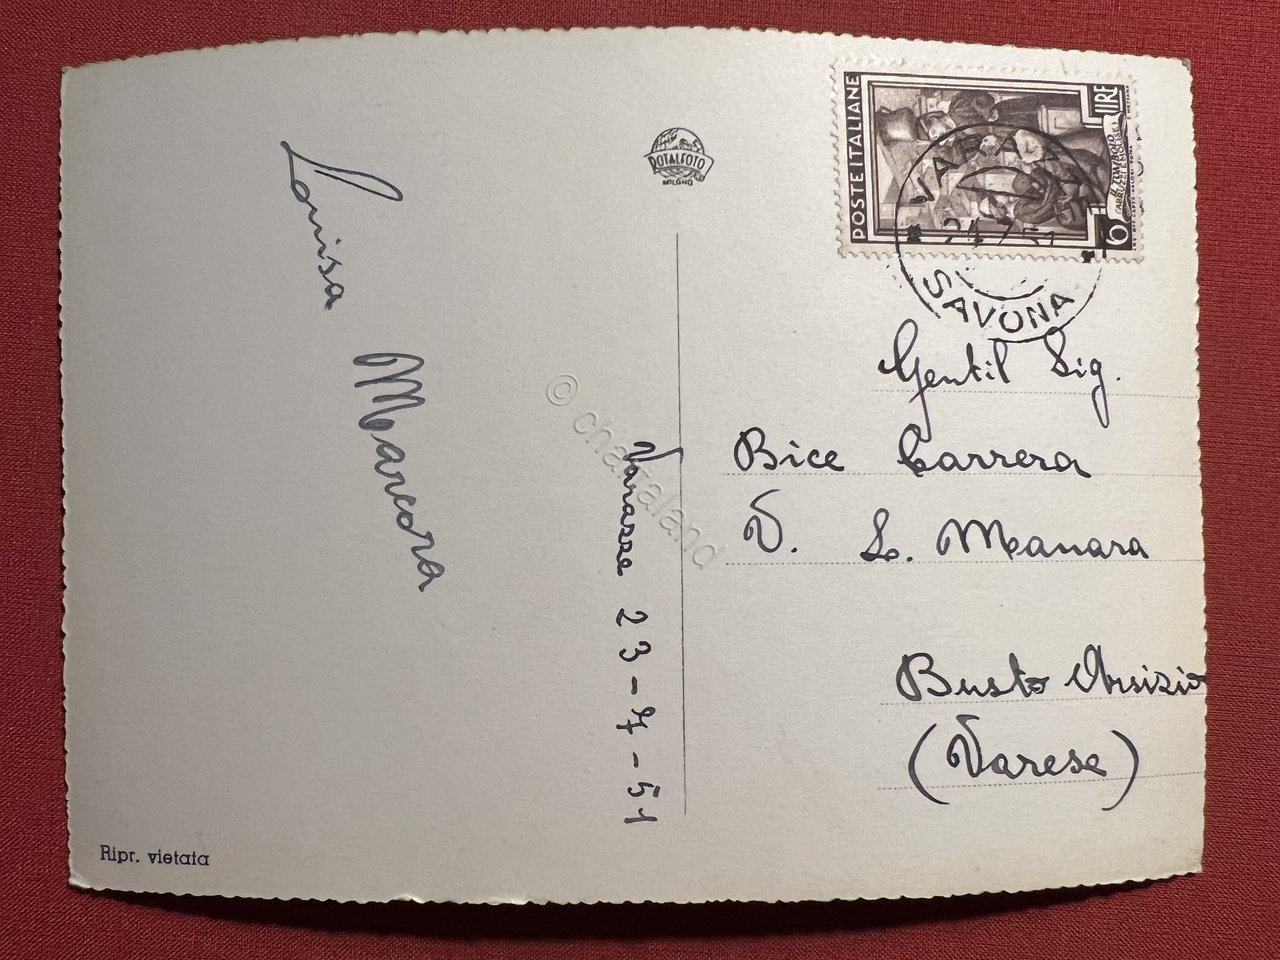 Louisa Mancora
Varazze 23-7-51
Ripr. vietata
ROTALFOTO
MILANO
POSTE ITALIANE
LIRE
6
VARAZZE
24.7.51
SAVONA
Gentil Sig.
Bice Carrera
V. L. Manara
Busto Arsizio
(Varese)
© cherraland